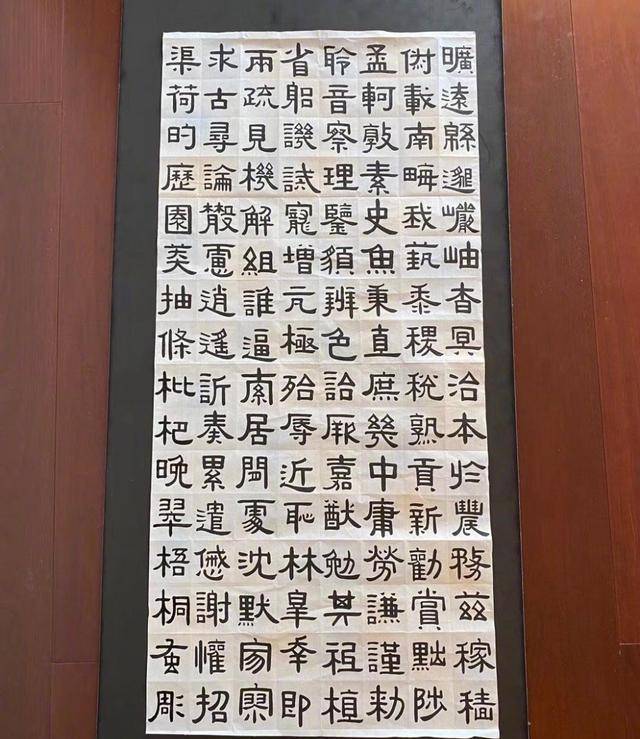 曠遠緜邈巖岫杳冥治本於農務茲稼穡
俶載南畮我蓺黍稷稅熟貢新勸賞黜陟
孟軻敦素史魚秉直庶幾中庸勞謙謹勑
聆音察理鑒貌辨色詒厥嘉猷勉其祗植
省躬譏誡寵增亢極殆辱近恥林皋幸即
兩疏見機解組誰逼索居閒處沈默寂寥
求古尋論散慮逍遙訢奏累遣慼謝懽招
渠荷旳歷園莽抽條枇杷晚翠梧桐蚤彫